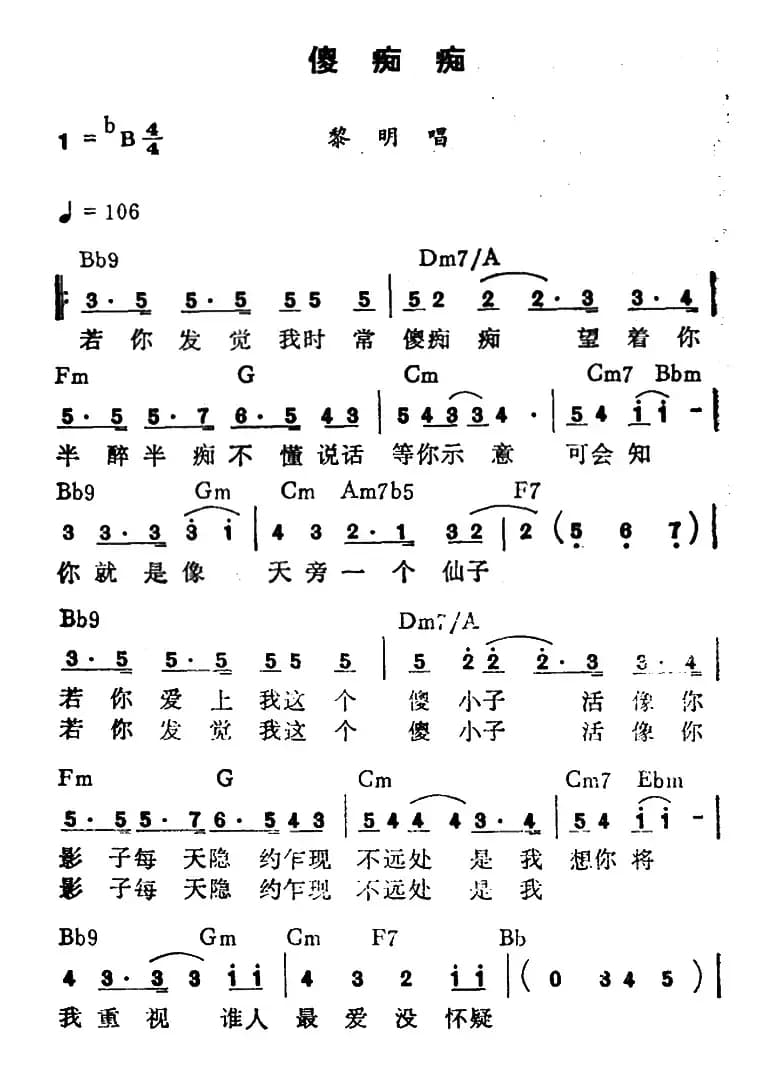 傻痴痴
1=ᵇB 4/4 黎明唱
♩=106
Bb9 Dm7/A
3·5 5·5 55 5 | 52 2 2·3 3·4 |
若你发觉我时常傻痴痴 望着你
Fm G Cm Cm7 Bbm
5·5 5·7 6·5 43 | 54334· | 54 i i - |
半醉半痴不懂说话 等你示意 可会知
Bb9 Gm Cm Am7b5 F7
3 3·3 3 i | 4 3 2·1 32 | 2 (5 6 7) |
你就是像 天旁一个 仙子
Bb9 Dm7/A
3·5 5·5 55 5 | 5 22 2·3 3·4 |
若你爱上我这个 傻小子 活像你
若你发觉我这个 傻小子 活像你
Fm G Cm Cm7 Ebm
5·55·76·543 | 544 4 3·4 | 54 i i - |
影子每天隐约乍现 不远处 是我想你将
影子每天隐约乍现 不远处 是我
Bb9 Gm Cm F7 Bb
4 3·3 3 i i | 4 3 2 i i | ( 0 34 5 ) |
我重视 谁人最爱没怀疑